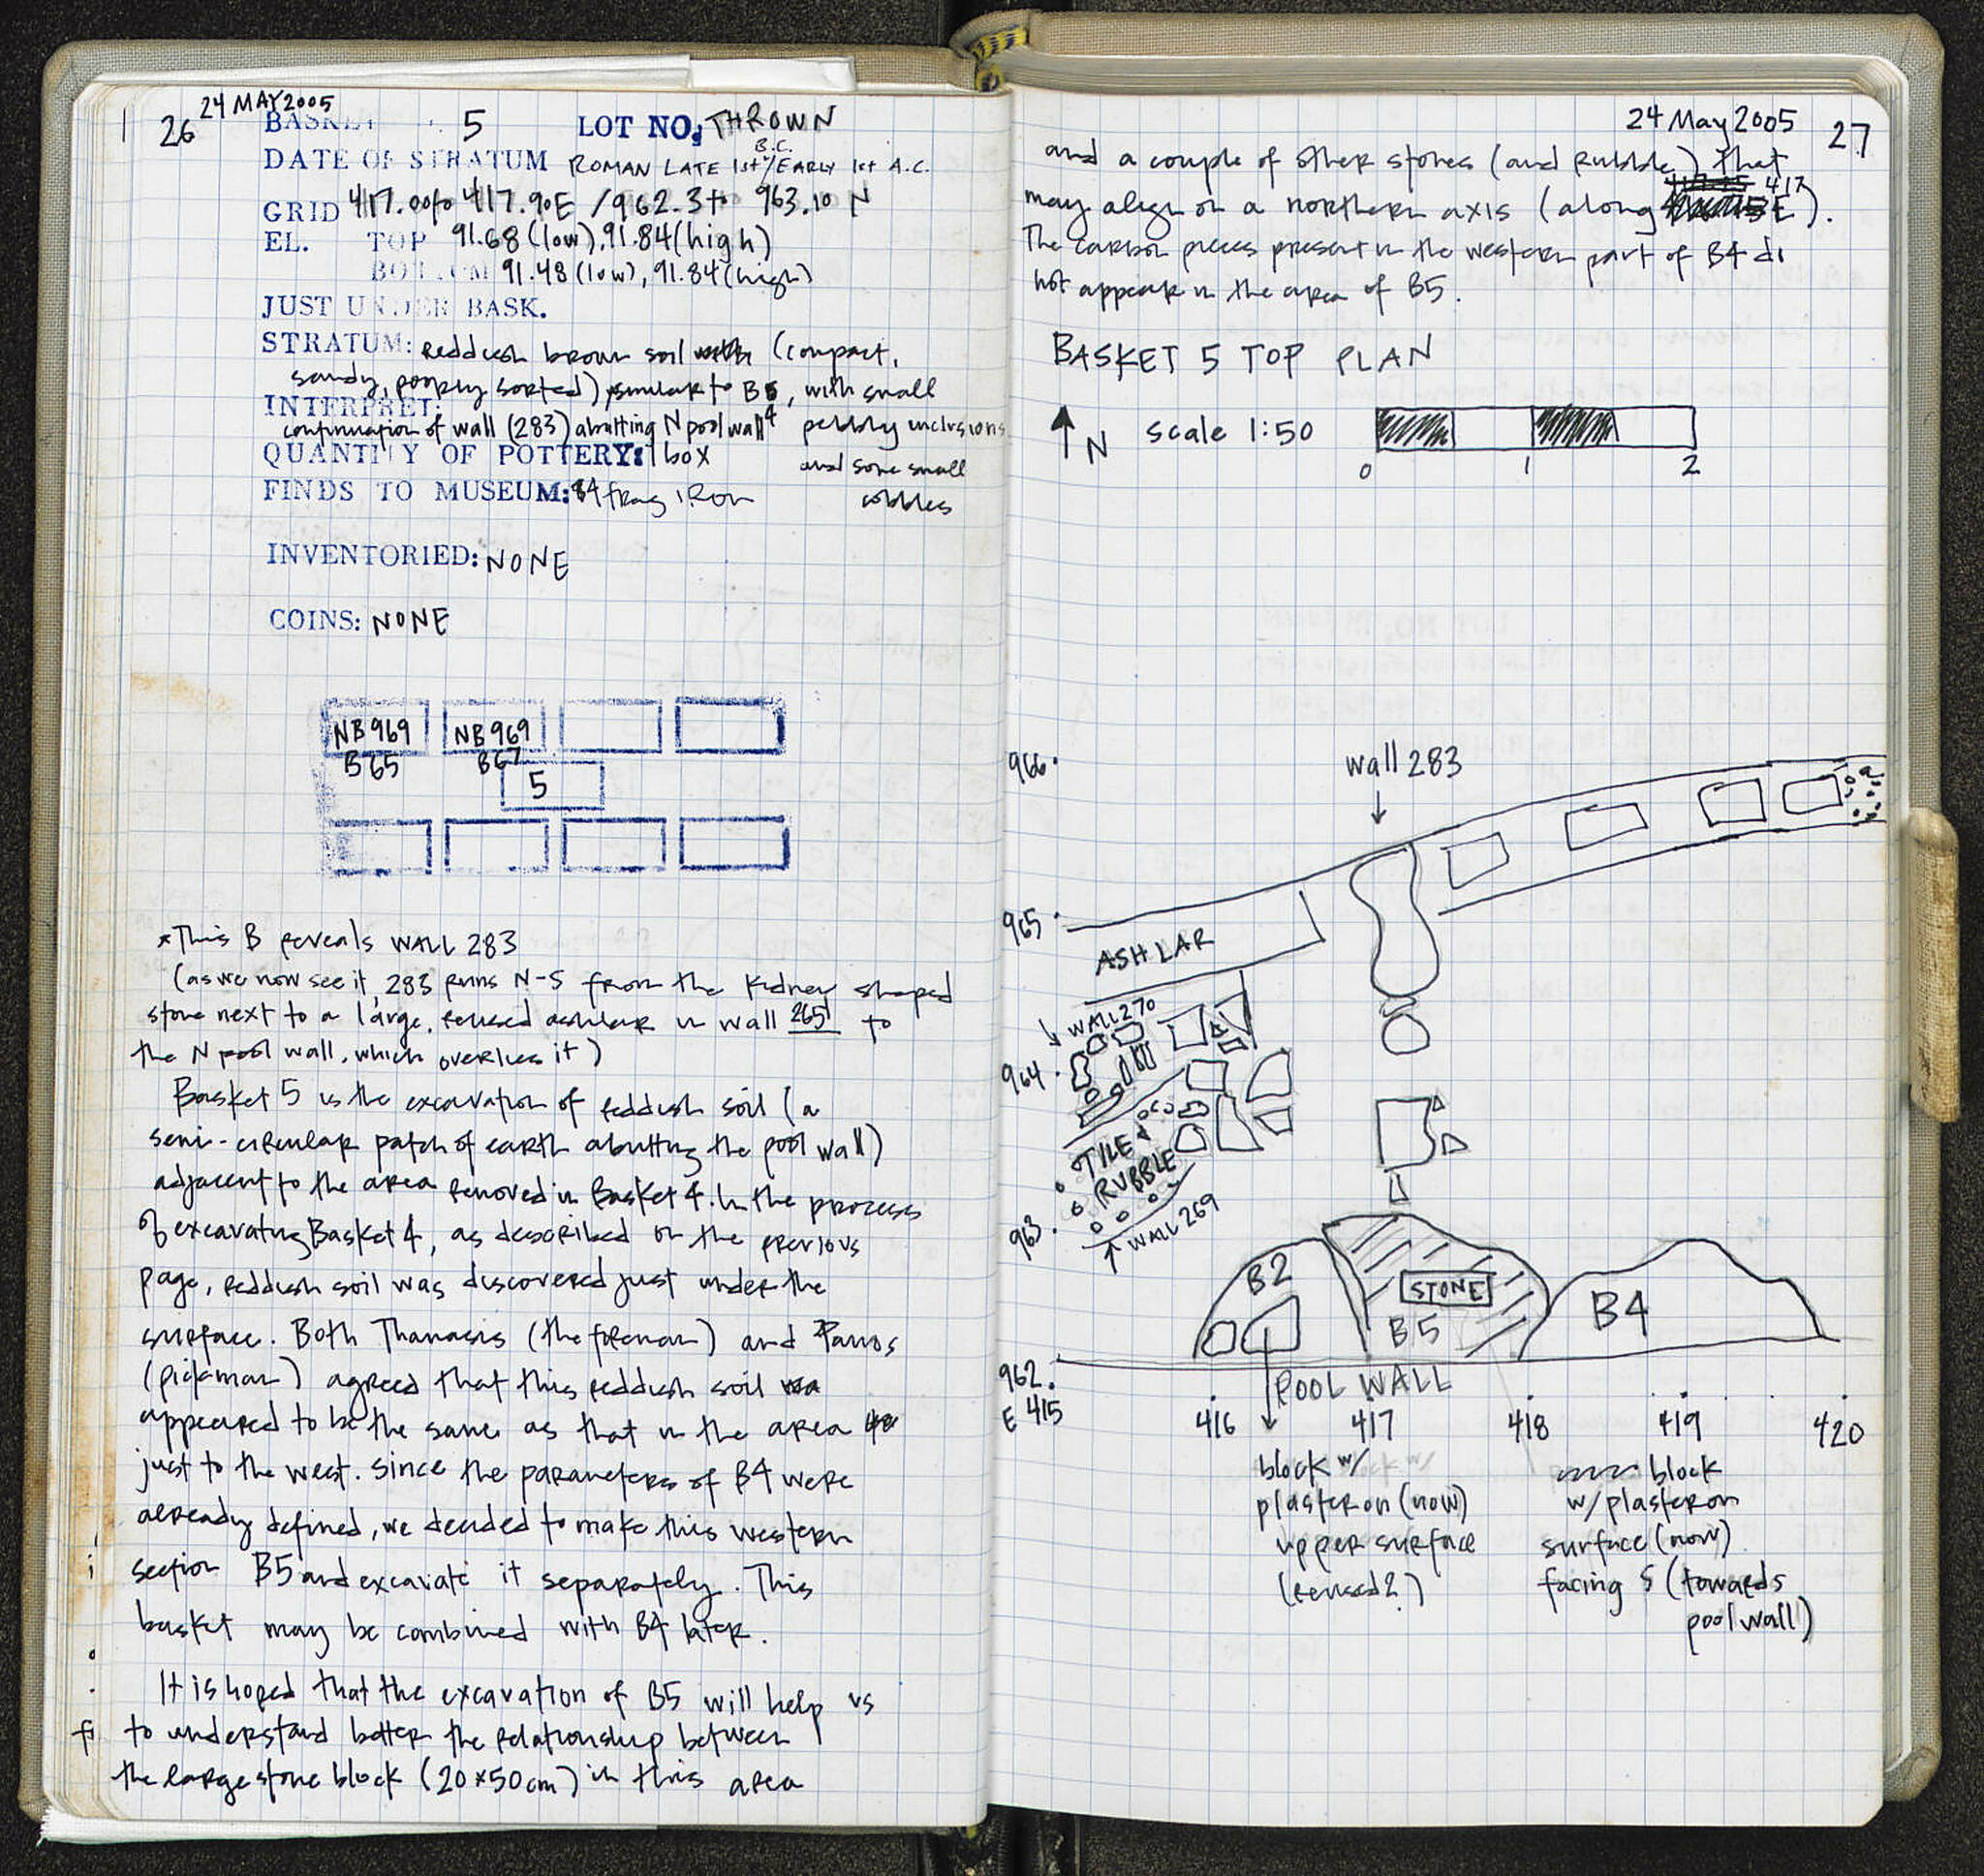 24 MAY 2005
26
BASKET 5 LOT NO. THROWN
DATE OF STRATUM ROMAN LATE 1st B.C./EARLY 1st A.C.
GRID 417.00 to 417.90E / 962.3 to 963.10 N
EL. TOP 91.68 (low), 91.84 (high)
BOTTOM 91.48 (low), 91.84 (high)
JUST UNDER BASK.
STRATUM: Reddish brown soil (compact,
sandy, poorly sorted) similar to B5, with small
pebbly inclusions
and some small
cobbles
INTERPRET:
continuation of wall (283) abutting N pool wall
QUANTITY OF POTTERY: 1 box
FINDS TO MUSEUM: frag iron
INVENTORIED: NONE
COINS: NONE
NB 969 NB 969
B65 B67
5
*This B reveals WALL 283
(as we now see it, 283 runs N-S from the kidney shaped
stone next to a large, reused ashlar in wall 265 to
the N pool wall, which overlies it)
Basket 5 is the excavation of reddish soil (a
semi-circular patch of earth abutting the pool wall)
adjacent to the area removed in Basket 4. In the process
of excavating Basket 4, as described on the previous
page, reddish soil was discovered just under the
surface. Both Thanasis (the foreman) and Panos
(pickman) agreed that this reddish soil
appeared to be the same as that in the area
just to the west. Since the parameters of B4 were
already defined, we decided to make this western
section B5 and excavate it separately. This
basket may be combined with B4 later.
It is hoped that the excavation of B5 will help us
to understand better the relationship between
the large stone block (20x50cm) in this area
24 May 2005
27
and a couple of other stones (and rubble) that
may align on a northern axis (along 417 E).
The carbon pieces present in the western part of B4 do
not appear in the area of B5.
BASKET 5 TOP PLAN
N scale 1:50
0 1 2
966
wall 283
965
ASHLAR
WALL 270
964
TILE &
RUBBLE
963
WALL 269
B2
STONE
B5
B4
962
POOL WALL
E 415 416 417 418 419 420
block w/
plaster on (now)
upper surface
(reused?)
block
w/plaster on
surface (now)
facing S (towards
pool wall)